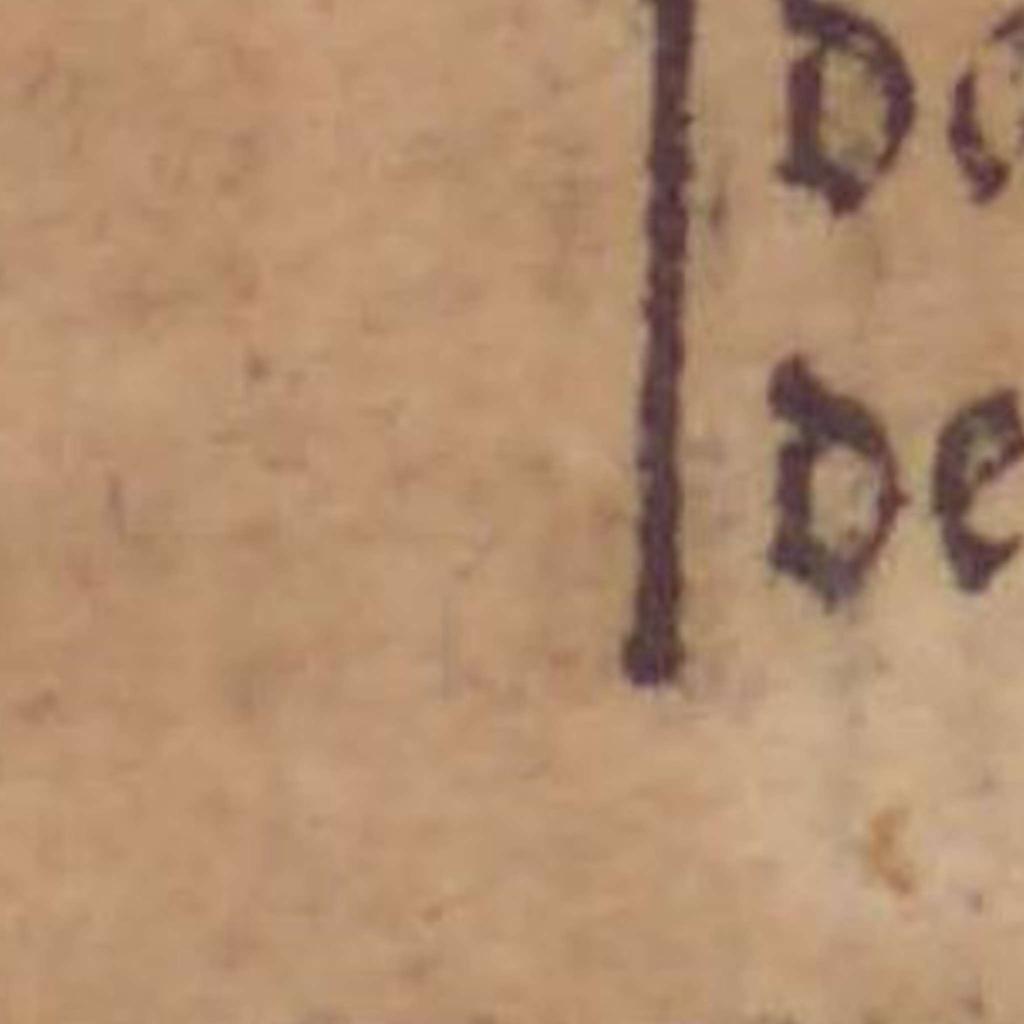 do
de